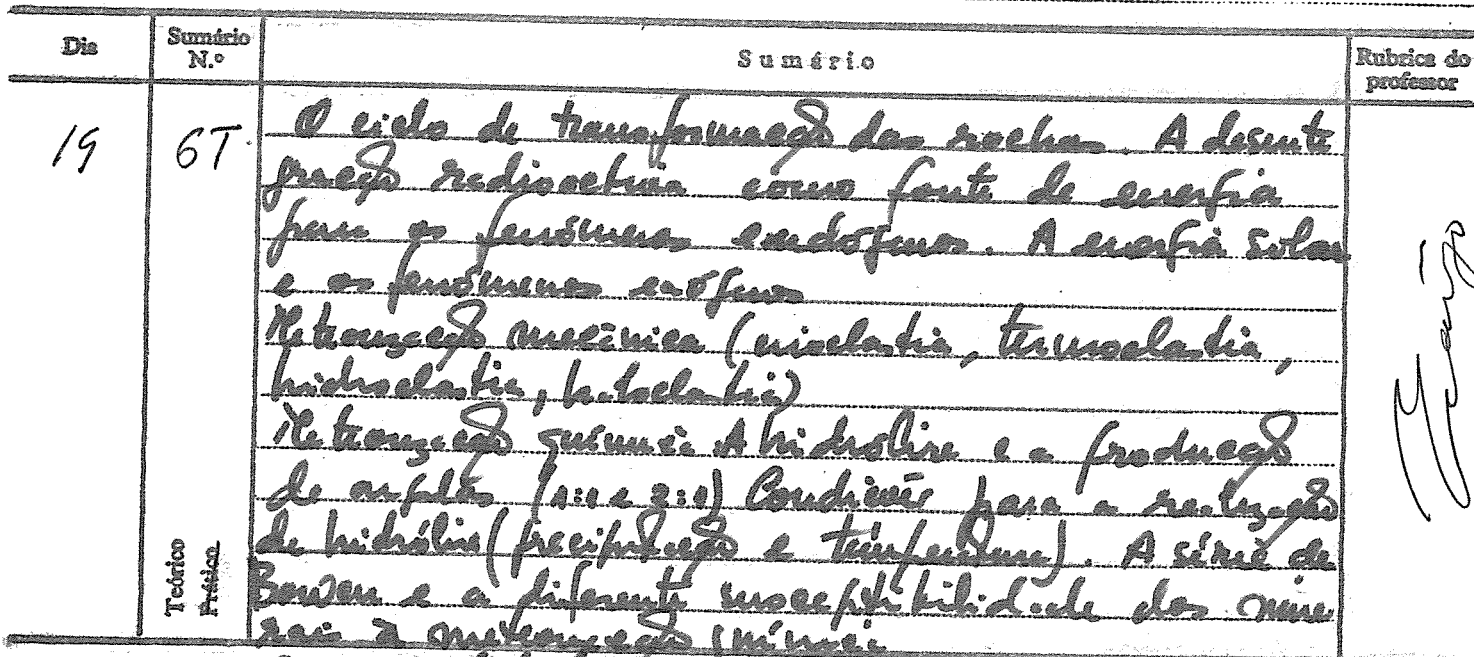 Dia
Sumário N.º
Sumário
Rubrica do professor
19
6T
Teórico
Prático
O ciclo de transformação das rochas. A desinte
gração radioactiva como fonte de energia
para os fenómenos endógenos. A energia solar
e os fenómenos exógenos
Meteorização mecânica (crioclastia, termoclastia,
hidroclastia, haloclastia)
Meteorização química A hidrólise e a produção
de argilas (1:1 e 2:1) Condições para a realização
de hidrólise (precipitação e temperatura). A série de
Bowen e a diferente susceptibilidade dos mine
rais à meteorização química